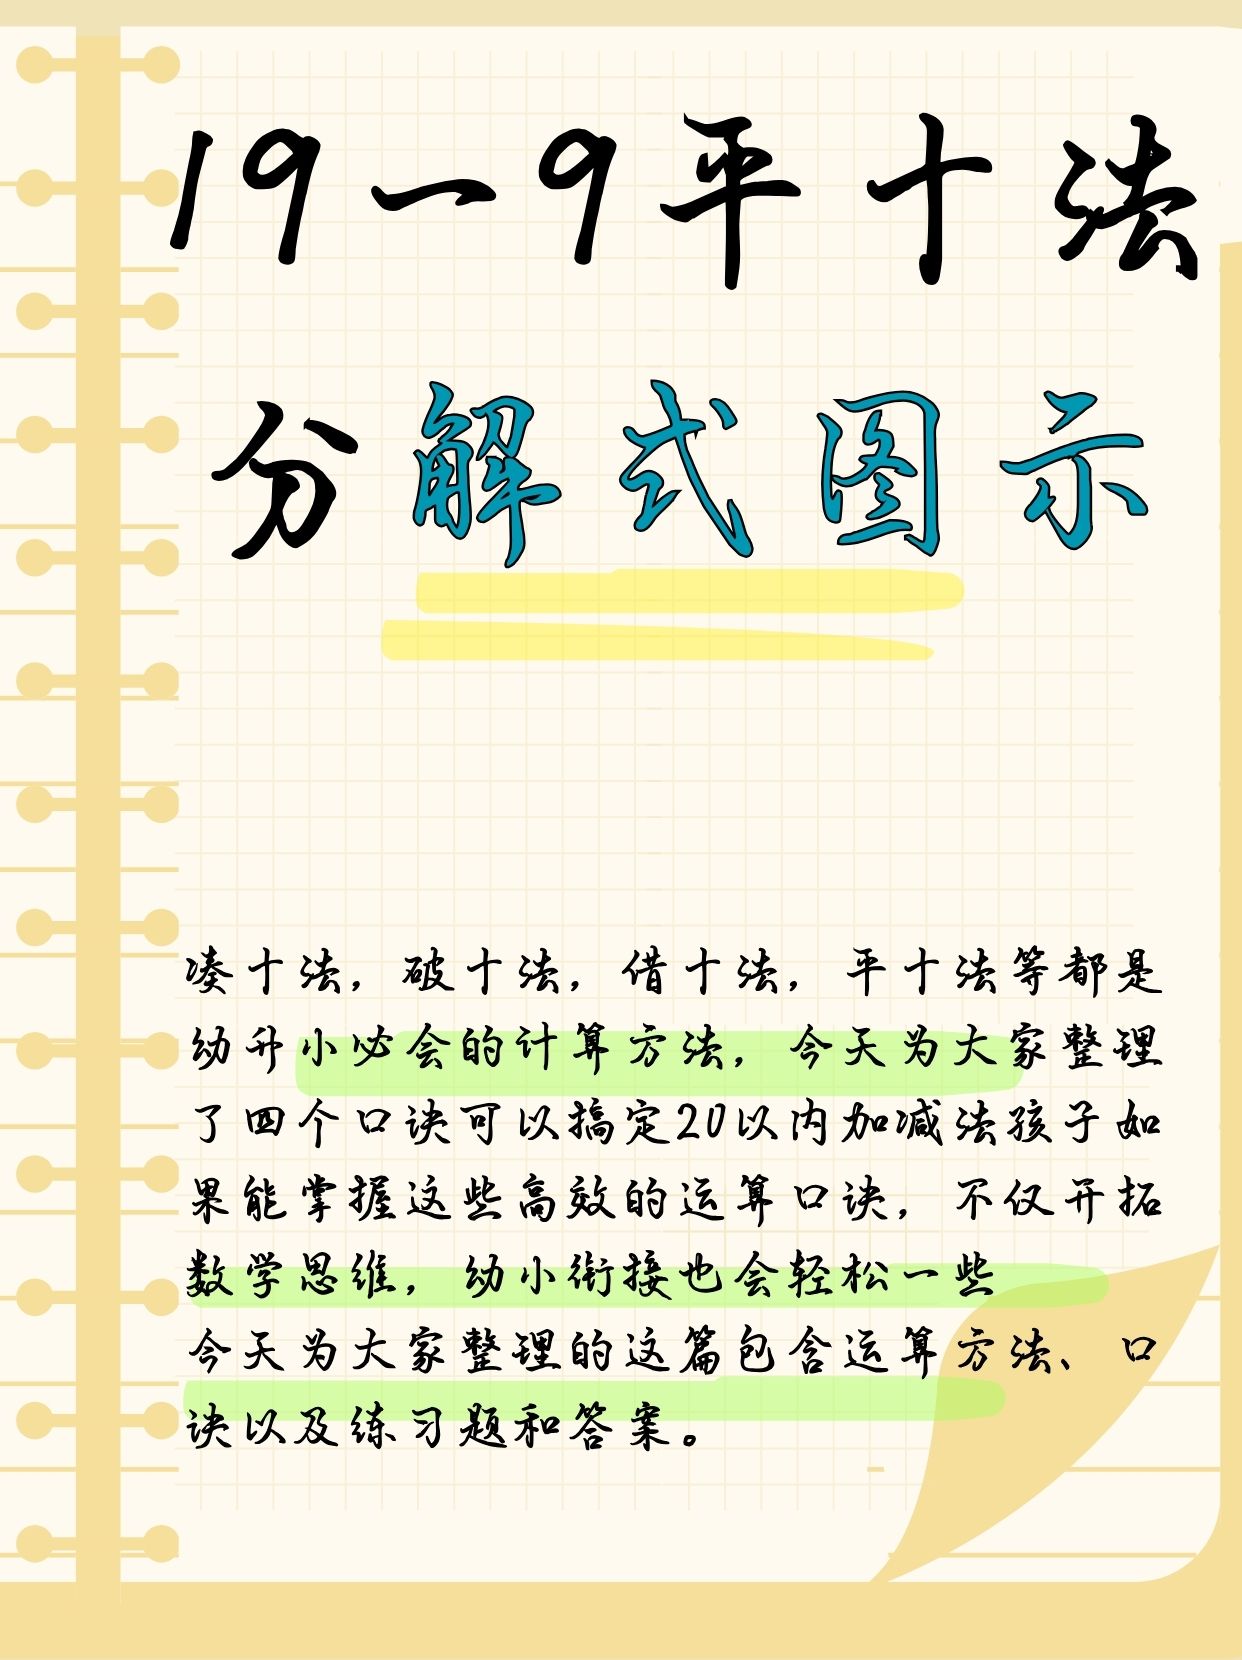 19一9平十法
分解式图示
凑十法，破十法，借十法，平十法等都是
幼升小必会的计算方法，今天为大家整理
了四个口诀可以搞定20以内加减法孩子如
果能掌握这些高效的运算口诀，不仅开拓
数学思维，幼小衔接也会轻松一些
今天为大家整理的这篇包含运算方法、口
诀以及练习题和答案。